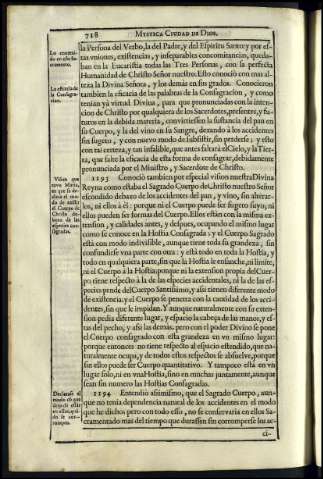 718 MYSTICA CIUDAD DE DIOS.
la Persona del Verbo, la del Padre, y del Espiritu Santo; y por es-
tas vniones, existencias, y inseparables concomitancias, queda-
ban en la Eucaristia todas las Tres Personas, con la perfecta
Humanidad de Christo Señor nuestro. Esto conoció con mas al-
teza la Divina Señora, y los demàs en sus grados. Conocieron
tambien la eficacia de las palabras de la Consagracion, y como
tenian yà virtud Divina, para que pronunciadas con la inten-
cion de Christo por qualquiera de los Sacerdotes, presentes, y fu-
turos en la debida materia, convirtiessen la sustancia del pan en
su Cuerpo, y la del vino en su Sangre, dexando à los accidentes
sin sugeto, y con nuevo modo de subsistir, sin perderse; y esto
con tal certeza, y tan infalible, que antes faltarà el Cielo, y la Tie-
rra, que falte la eficacia de esta forma de consagrar, debidamente
pronunciada por el Ministro, y Sacerdote de Christo.
1193 Conoció tambien por especial vision nuestra Divina
Reyna como estaba el Sagrado Cuerpo de Christo nuestro Señor
escondido debaxo de los accidentes del pan, y vino, sin alterar-
los, ni ellos à èl: porque ni el Cuerpo puede ser sugeto suyo, ni
ellos pueden ser formas del Cuerpo. Ellos estàn con la misma es-
tension, y calidades antes, y despues, ocupando el mismo lugar
como se conoce en la Hostia Consagrada: y el Cuerpo Sagrado
està con modo indivisible, aunque tiene toda su grandeza, sin
confundirse vna parte con otra: y està todo en toda la Hostia, y
todo en qualquiera parte, sin que la Hostia le ensanche, ni limite,
ni el Cuerpo à la Hostia; porque ni la extension propia del Cuer-
po tiene respecto à la de las especies accidentales, ni la de las es-
pecies pende del Cuerpo Santissimo, y assi tienen diferente modo
de existencia: y el Cuerpo se penetra con la cantidad de los acci-
dentes, sin que le impidan. Y aunque naturalmente con su exten-
sion pedia diferente lugar, y espacio la cabeça de las manos, y es-
tas del pecho, y assi las demàs: pero con el poder Divino se pone
el Cuerpo consagrado con esta grandeza en vn mismo lugar:
porque entonces no tiene respecto al espacio estendido, que na-
turalmente ocupa, y de todos estos respectos se absuelve, porque
sin ellos puede ser Cuerpo quantitativo. Y tampoco està en vn
lugar solo, ni en vna Hostia, sino en muchas juntamente, aunque
sean sin numero las Hostias Consagradas.
1194 Entendió assimismo, que el Sagrado Cuerpo, aun-
que no tenia dependencia natural de los accidentes en el modo
que he dicho; pero con todo esso, no se conservaria en ellos Sa-
cramentado mas del tiempo que durassen sin corromperse los ac-
ci-